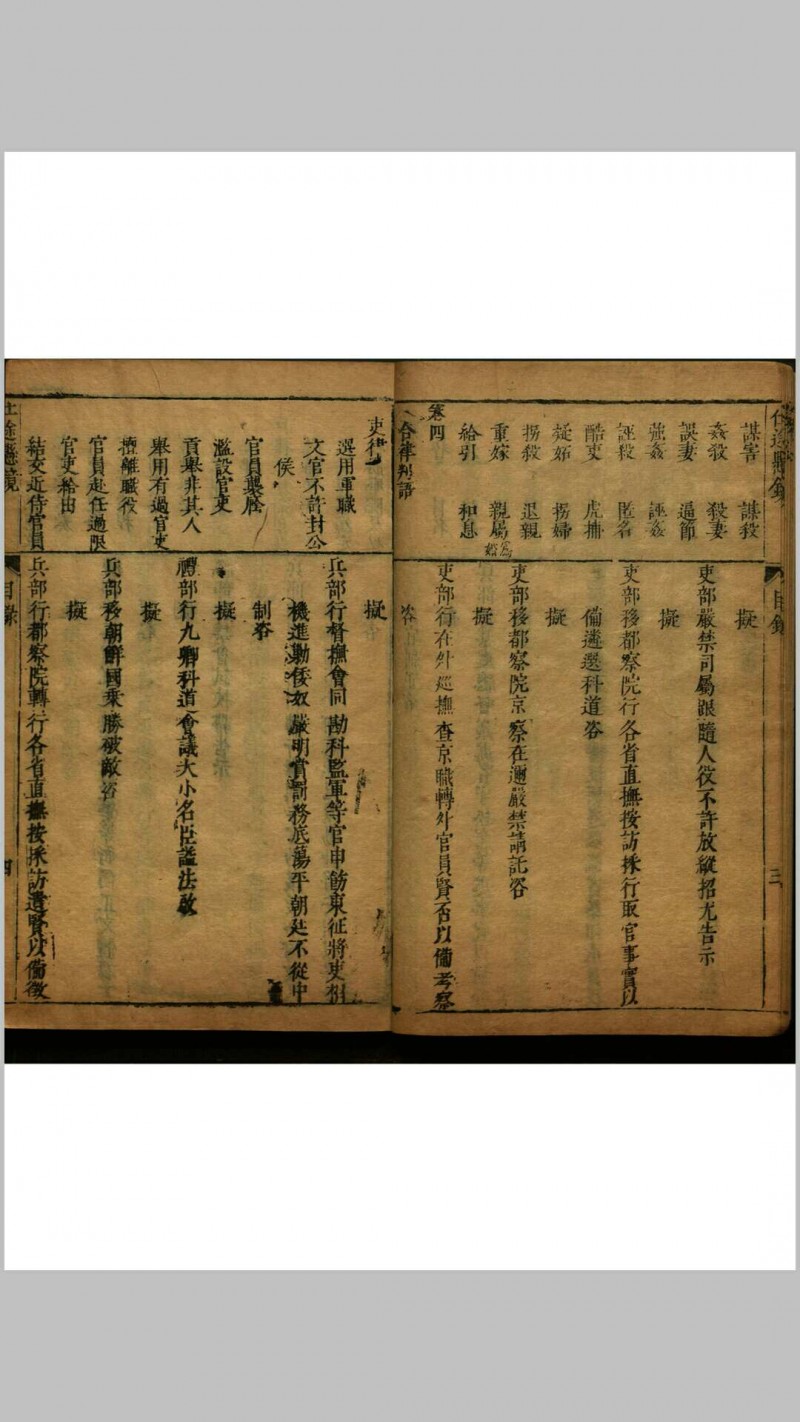 目錄
三
謀害 謀殺
姦殺 殺妻
誤妻 逼節
強姦 誣姦
誣殺 匿名
酷吏 虎捕
疑妬 拐婦
拐殺 退親
重嫁 親屬為婚
給引 和息
卷四
合律判語
擬
吏部嚴禁司屬跟隨人役不許放縱招尤告示
擬
吏部移都察院行各省直撫按訪採行取官事實以
備遴選科道咨
擬
吏部移都察院京察在邇嚴禁請託咨
擬
吏部行在外巡撫查京職轉外官員賢否以備考察
咨
吏律
選用軍職
文官不許封公
侯
官員襲廕
濫設官吏
貢舉非其人
舉用有過官吏
擅離職役
官員赴任過限
官吏給由
結交近侍官員
擬
兵部行督撫會同勘科監軍等官申飭東征將吏相
機進勦倭奴嚴明賞罰務底蕩平朝廷不從中
制咨
擬
禮部行九卿科道會議大小名臣諡法啟
擬
兵部移朝鮮國乘勝破敵咨
擬
兵部行都察院轉行各省直撫按採訪遺賢以備徵
目錄
四